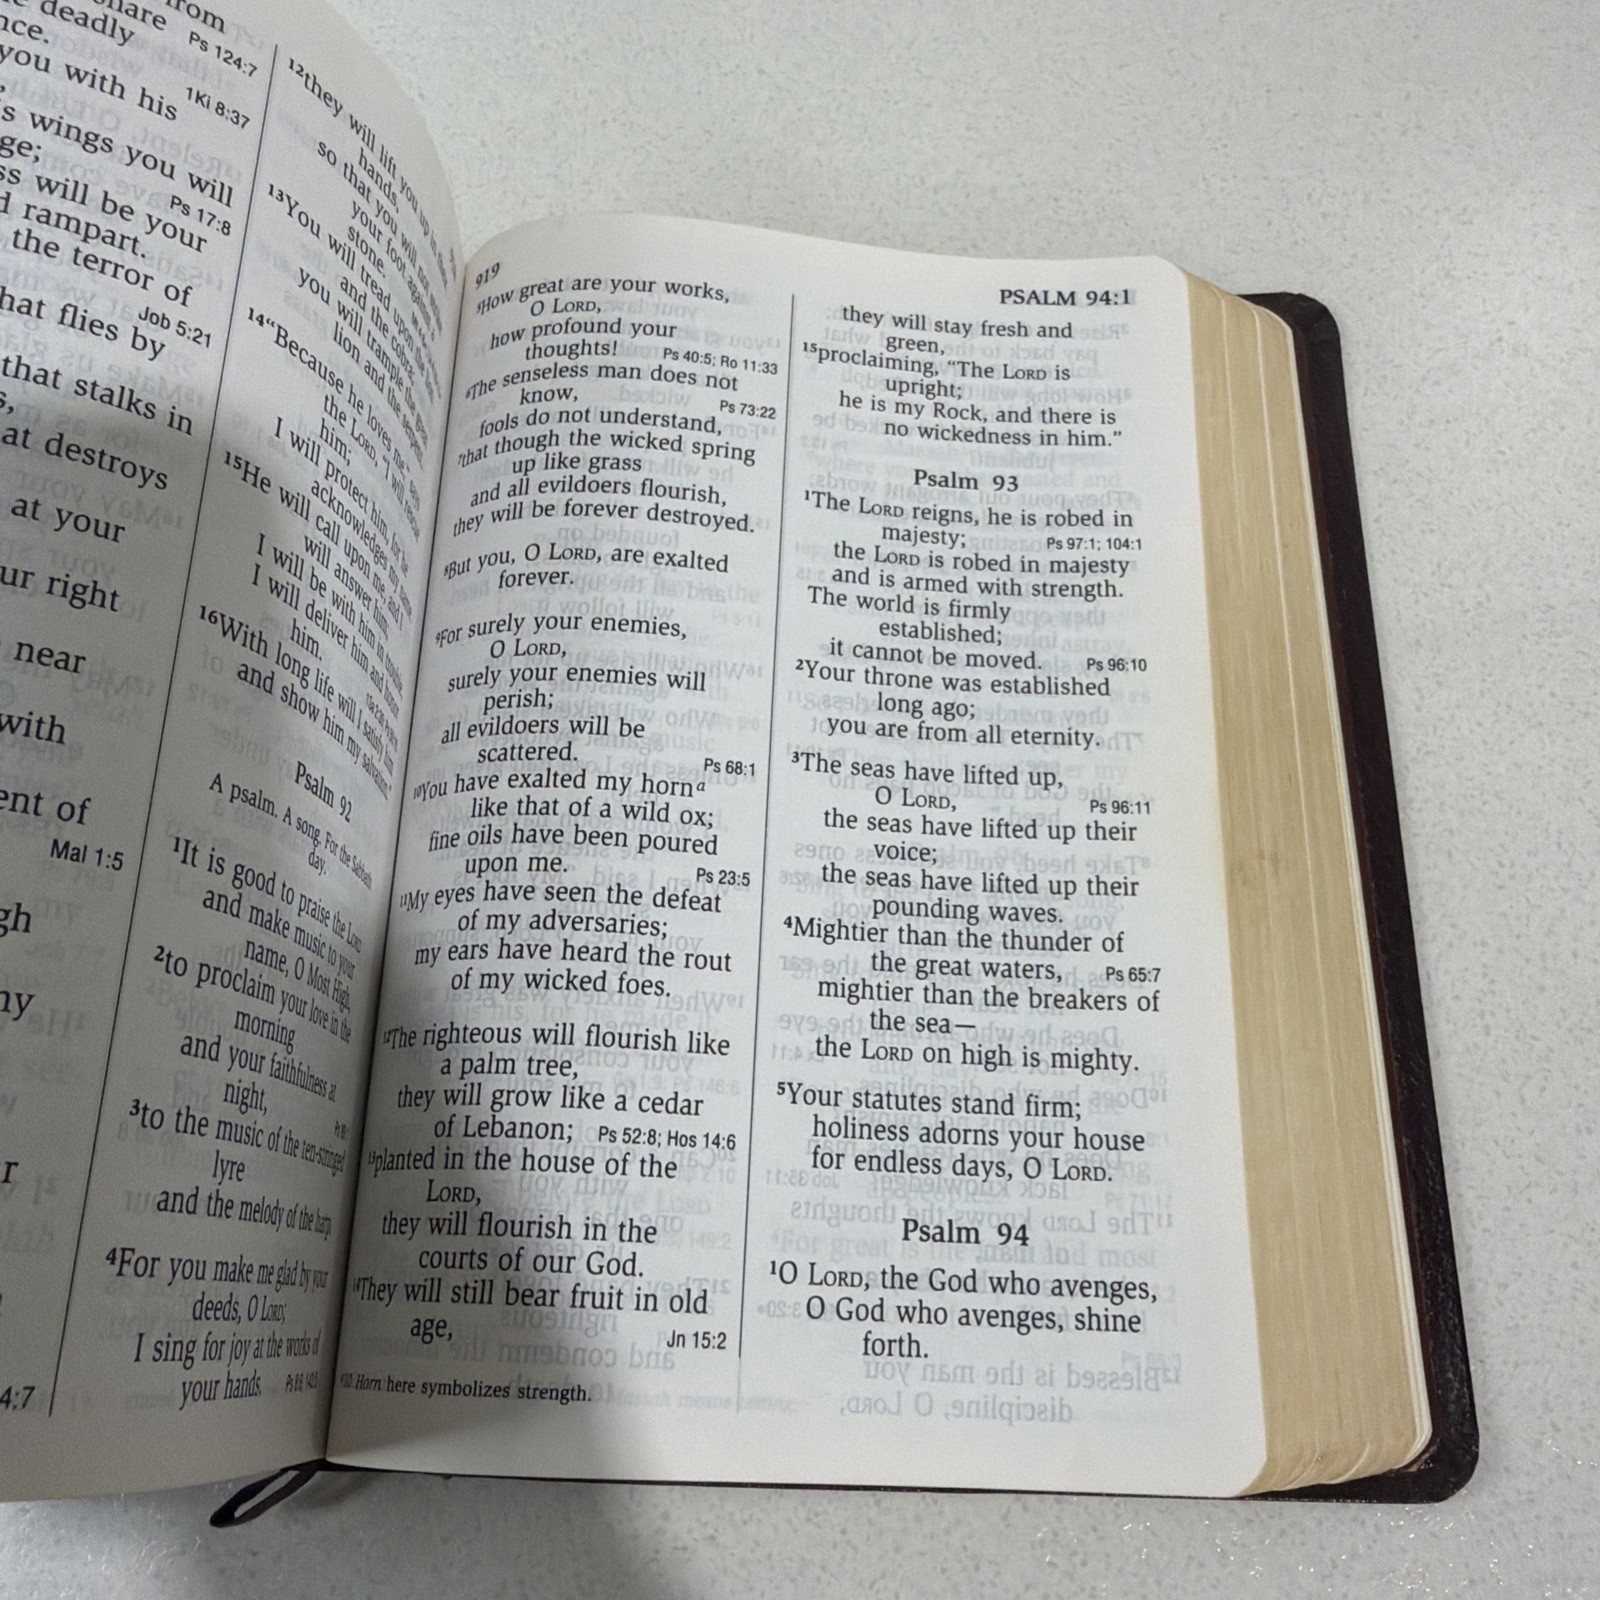 from
share
deadly
nce.
Ps 124:7
you with his
1Ki 8:37
s wings you will
ge;
ss will be your
Ps 17:8
d rampart.
the terror of
Job 5:21
hat flies by
that stalks in
s,
at destroys
at your
ur right
near
with
ent of
Mal 1:5
gh
ny
r
4:7
12they will lift you up in their
hands,
so that you will not strike
your foot against a
stone.
13You will tread upon the lion
and the cobra;
you will trample the great
lion and the serpent.
14“Because he loves me,” says
the LORD, “I will rescue
him;
I will protect him, for he
acknowledges my name.
15He will call upon me, and I
will answer him;
I will be with him in trouble,
I will deliver him and honor
him.
16With long life will I satisfy him
and show him my salvation.”
Psalm 92
A psalm. A song. For the Sabbath
day.
1It is good to praise the LORD
and make music to your
name, O Most High,
2to proclaim your love in the
morning
and your faithfulness at
night,
3to the music of the ten-stringed
lyre
and the melody of the harp.
4For you make me glad by your
deeds, O LORD;
I sing for joy at the works of
your hands.
919
5How great are your works,
O LORD,
how profound your
thoughts! Ps 40:5; Ro 11:33
6The senseless man does not
know, Ps 73:22
fools do not understand,
7that though the wicked spring
up like grass
and all evildoers flourish,
they will be forever destroyed.
8But you, O LORD, are exalted
forever.
9For surely your enemies,
O LORD,
surely your enemies will
perish;
all evildoers will be
scattered. Ps 68:1
10You have exalted my horna
like that of a wild ox;
fine oils have been poured
upon me. Ps 23:5
11My eyes have seen the defeat
of my adversaries;
my ears have heard the rout
of my wicked foes.
12The righteous will flourish like
a palm tree,
they will grow like a cedar
of Lebanon; Ps 52:8; Hos 14:6
13planted in the house of the
LORD,
they will flourish in the
courts of our God.
14They will still bear fruit in old
age, Jn 15:2
a10 Horn here symbolizes strength.
PSALM 94:1
they will stay fresh and
green,
15proclaiming, “The LORD is
upright;
he is my Rock, and there is
no wickedness in him.”
Psalm 93
1The LORD reigns, he is robed in
majesty; Ps 97:1; 104:1
the LORD is robed in majesty
and is armed with strength.
The world is firmly
established;
it cannot be moved. Ps 96:10
2Your throne was established
long ago;
you are from all eternity.
3The seas have lifted up,
O LORD, Ps 96:11
the seas have lifted up their
voice;
the seas have lifted up their
pounding waves.
4Mightier than the thunder of
the great waters, Ps 65:7
mightier than the breakers of
the sea—
the LORD on high is mighty.
5Your statutes stand firm;
holiness adorns your house
for endless days, O LORD.
Psalm 94
1O LORD, the God who avenges,
O God who avenges, shine
forth.